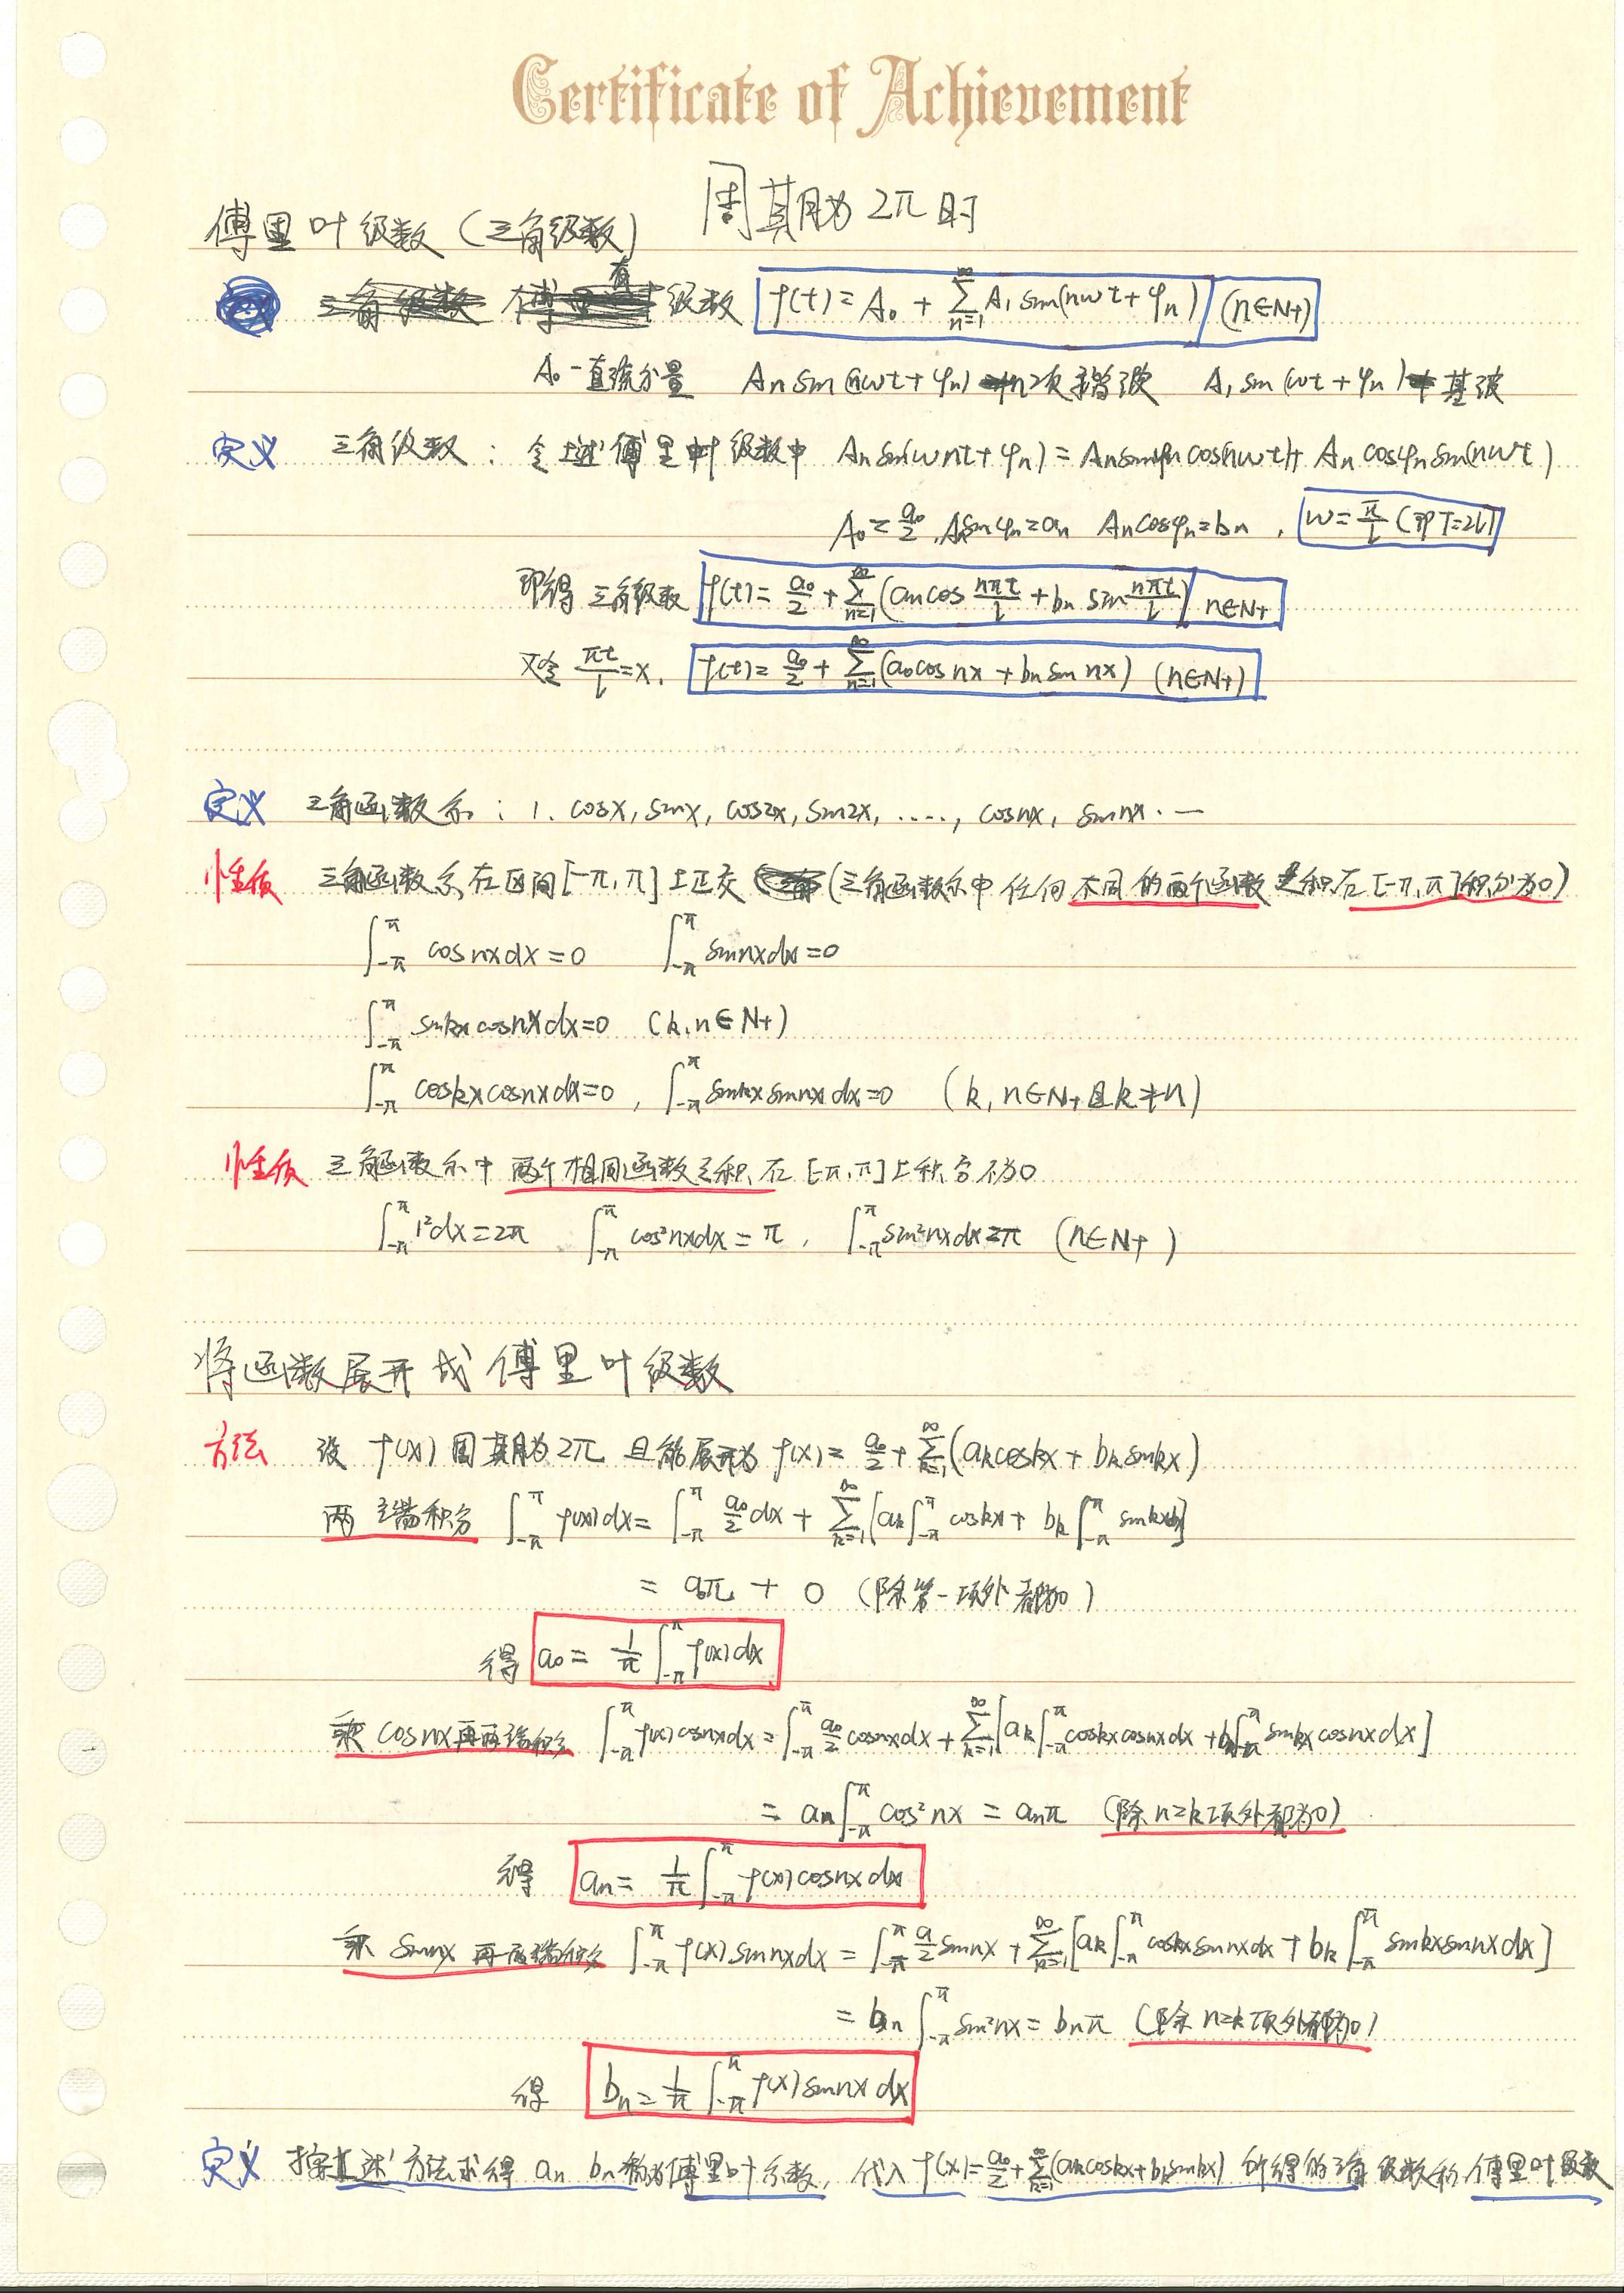 Certificate of Achievement
周期为 2π 时
傅里叶级数 (三角级数)
级数 f(t) = A₀ + ∑_{n=1}^{∞} A₁ sin(nωt + φₙ) (n∈N₊)
A₀ - 直流分量 Aₙ sin(nωt + φₙ) n次谐波 A₁ sin(ωt + φₙ) 基波
定义 三角级数 : 令上述傅里叶级数中 Aₙ sin(ωnt + φₙ) = Aₙ sinφₙ cos(nωt) + Aₙ cosφₙ sin(nωt)
A₀ = a₀/2 , Aₙ sinφₙ = aₙ Aₙ cosφₙ = bₙ , ω = π/l (即 T=2l)
即得 三角级数 f(t) = a₀/2 + ∑_{n=1}^{∞} (aₙ cos nπt/l + bₙ sin nπt/l) n∈N₊
又令 πt/l = x , f(t) = a₀/2 + ∑_{n=1}^{∞} (a₀ cos nx + bₙ sin nx) (n∈N₊)
定义 三角函数系 : 1. cosx, sinx, cos2x, sin2x, ...., cosnx, sinnx. —
性质 三角函数系在区间[-π, π]上正交 (三角函数系中任何不同的两个函数之积在[-π, π]积分为0)
∫_{-π}^{π} cosnxdx = 0 ∫_{-π}^{π} sinnxdx = 0
∫_{-π}^{π} sinkx cosnxdx = 0 (k, n∈N₊)
∫_{-π}^{π} coskx cosnxdx = 0 , ∫_{-π}^{π} sinkx sinnxdx = 0 (k, n∈N₊且k≠n)
性质 三角函数系中 两个相同函数之积在 [-π, π]上积分不为0
∫_{-π}^{π} 1²dx = 2π ∫_{-π}^{π} cos²nxdx = π , ∫_{-π}^{π} sin²nxdx = π (n∈N₊)
将函数展开成傅里叶级数
方法 设 f(x) 周期为2π 且能展开为 f(x) = a₀/2 + ∑_{k=1}^{∞} (aₖ coskx + bₖ sinkx)
两端积分 ∫_{-π}^{π} f(x)dx = ∫_{-π}^{π} a₀/2 dx + ∑_{k=1}^{∞} [aₖ ∫_{-π}^{π} coskx + bₖ ∫_{-π}^{π} sinkxdx]
= a₀π + 0 (除第一项外都为0)
得 a₀ = 1/π ∫_{-π}^{π} f(x)dx
乘 cosnx 再两端积分 ∫_{-π}^{π} f(x)cosnxdx = ∫_{-π}^{π} a₀/2 cosnxdx + ∑_{k=1}^{∞} [aₖ ∫_{-π}^{π} coskx cosnxdx + bₖ ∫_{-π}^{π} sinkx cosnxdx]
= aₙ ∫_{-π}^{π} cos²nx = aₙπ (除 n=k 项外都为0)
得 aₙ = 1/π ∫_{-π}^{π} f(x)cosnxdx
乘 sinnx 再两端积分 ∫_{-π}^{π} f(x)sinnxdx = ∫_{-π}^{π} a/2 sinnx + ∑_{k=1}^{∞} [aₖ ∫_{-π}^{π} coskx sinnxdx + bₖ ∫_{-π}^{π} sinkx sinnxdx]
= bₙ ∫_{-π}^{π} sin²nx = bₙπ (除 n=k 项外都为0)
得 bₙ = 1/π ∫_{-π}^{π} f(x)sinnxdx
定义 按上述方法求得 aₙ bₙ 称为傅里叶系数, 代入 f(x) = a₀/2 + ∑_{k=1}^{∞} (aₖcoskx + bₖsinkx) 所得的三角级数称傅里叶级数